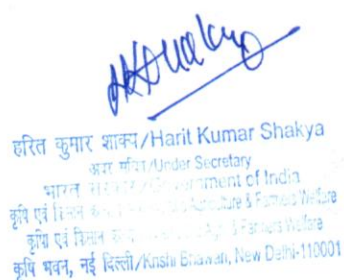 हरित कुमार शाक्य/Harit Kumar Shakya
अवर सचिव/Under Secretary
भारत सरकार/Government of India
कृषि एवं किसान Agriculture & Farmers Welfare
कृषि एवं किसान Agri. & Farmers Welfare
कृषि भवन, नई दिल्ली/Krishi Bhawan, New Delhi-110001